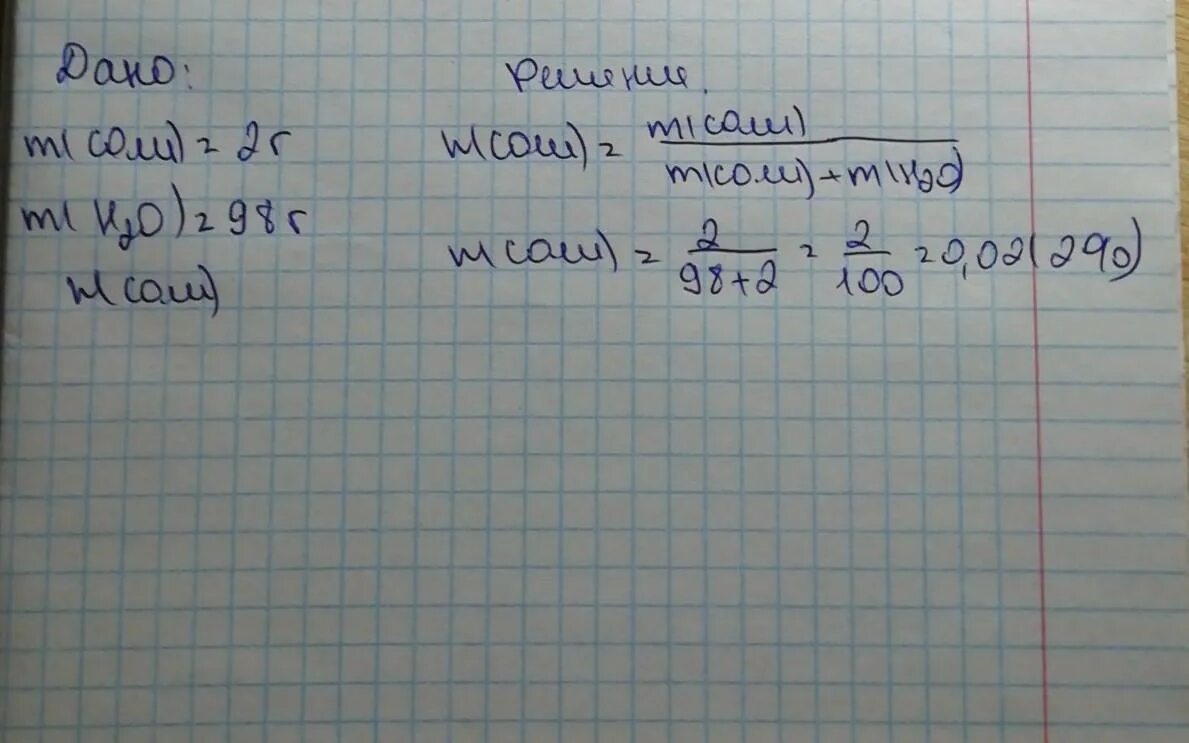 Дано:
m(соли) = 2г
m(H₂O) = 98г
w(соли)
Решение.
w(соли) = m(соли) / m(соли) + m(H₂O)
w(соли) = 2 / 98+2 = 2 / 100 = 0,02 (2%)